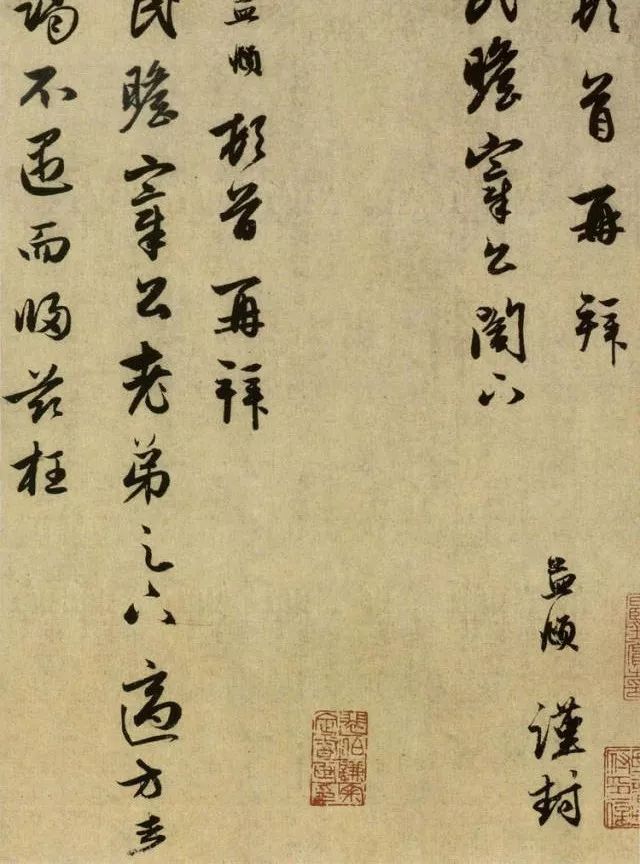 頓首再拜
孟頫謹封
民瞻宰公閣下
孟頫頓首再拜
民瞻宰公老弟足下適方走
謁不遇而歸茲枉